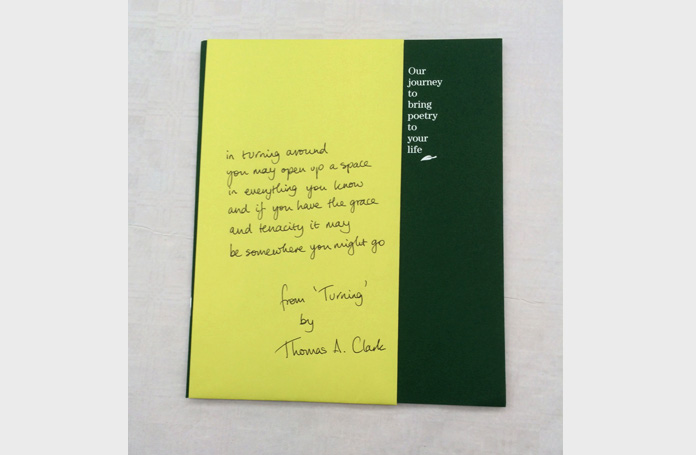 in turning around
you may open up a space
in everything you know
and if you have the grace
and tenacity it may
be somewhere you might go
from 'Turning'
by
Thomas A. Clark
Our
journey
to
bring
poetry
to
your
life